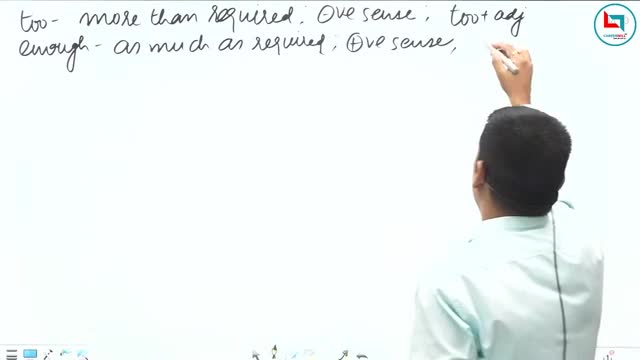 too - more than required; ⊖ve sense; too + adj
enough - as much as required; ⊕ve sense,